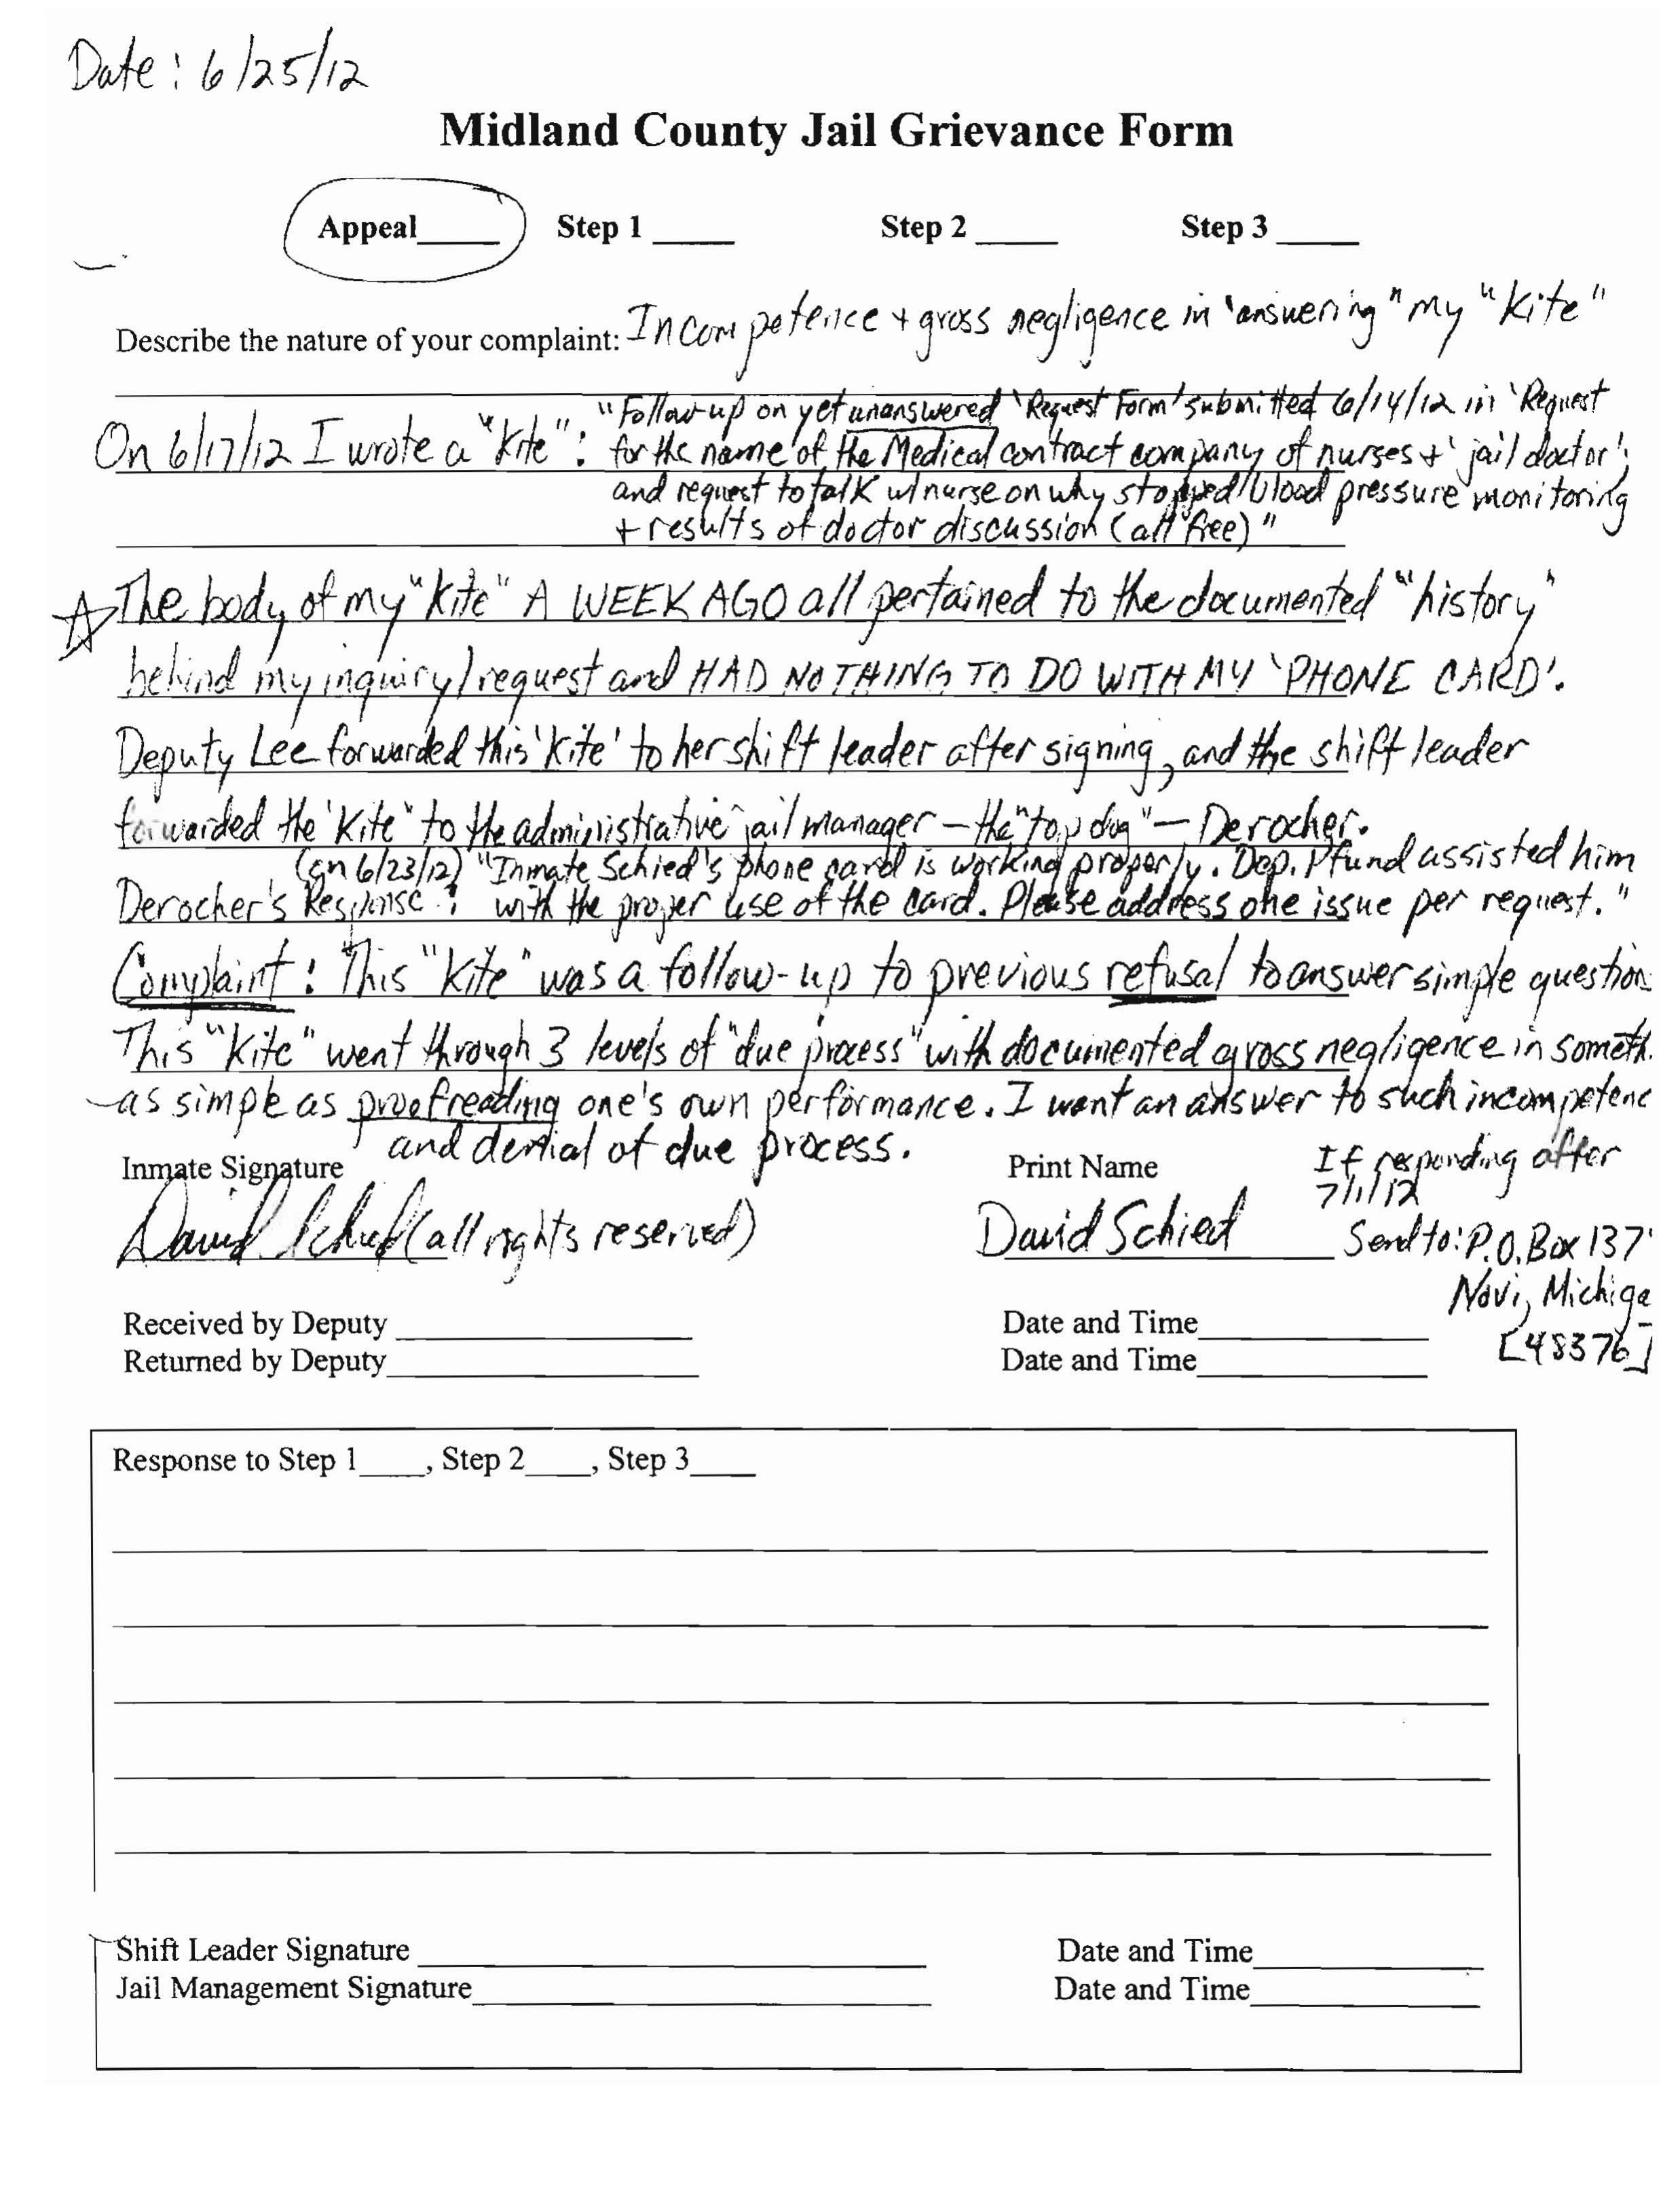 Date: 6/25/12
Midland County Jail Grievance Form
Appeal_____ Step 1 _____ Step 2 _____ Step 3 _____
Describe the nature of your complaint: Incompetence + gross negligence in 'answering" my "Kite"
On 6/17/12 I wrote a "Kite": "Follow-up on yet unanswered 'Request Form' submitted 6/14/12 in 'Request
for the name of the Medical contract company of nurses + 'jail doctor';
and request to talk w/nurse on why stopped blood pressure monitoring
+ results of doctor discussion (all free)"
☆ The body of my "Kite" A WEEK AGO all pertained to the documented "history"
behind my inquiry/request and HAD NOTHING TO DO WITH MY 'PHONE CARD'.
Deputy Lee forwarded this 'Kite' to her shift leader after signing, and the shift leader
forwarded the 'Kite" to the administrative jail manager – the "top dog" – Derocher.
Derocher's Response (on 6/23/12): "Inmate Schied's phone card is working properly. Dep. Pfund assisted him
with the proper use of the card. Please address one issue per request."
Complaint: This "Kite" was a follow-up to previous refusal to answer simple question
This "Kite" went through 3 levels of "due process" with documented gross negligence in someth
-as simple as proofreading one's own performance. I want an answer to such incompetenc
and denial of due process.
Inmate Signature Print Name If responding after
7/1/12
David Schied (all rights reserved) David Schied Send to: P.O. Box 137
Novi, Michiga
[48376]
Received by Deputy _____ Date and Time_____
Returned by Deputy_____ Date and Time_____
Response to Step 1____, Step 2____, Step 3____
Shift Leader Signature _____ Date and Time_____
Jail Management Signature_____ Date and Time_____